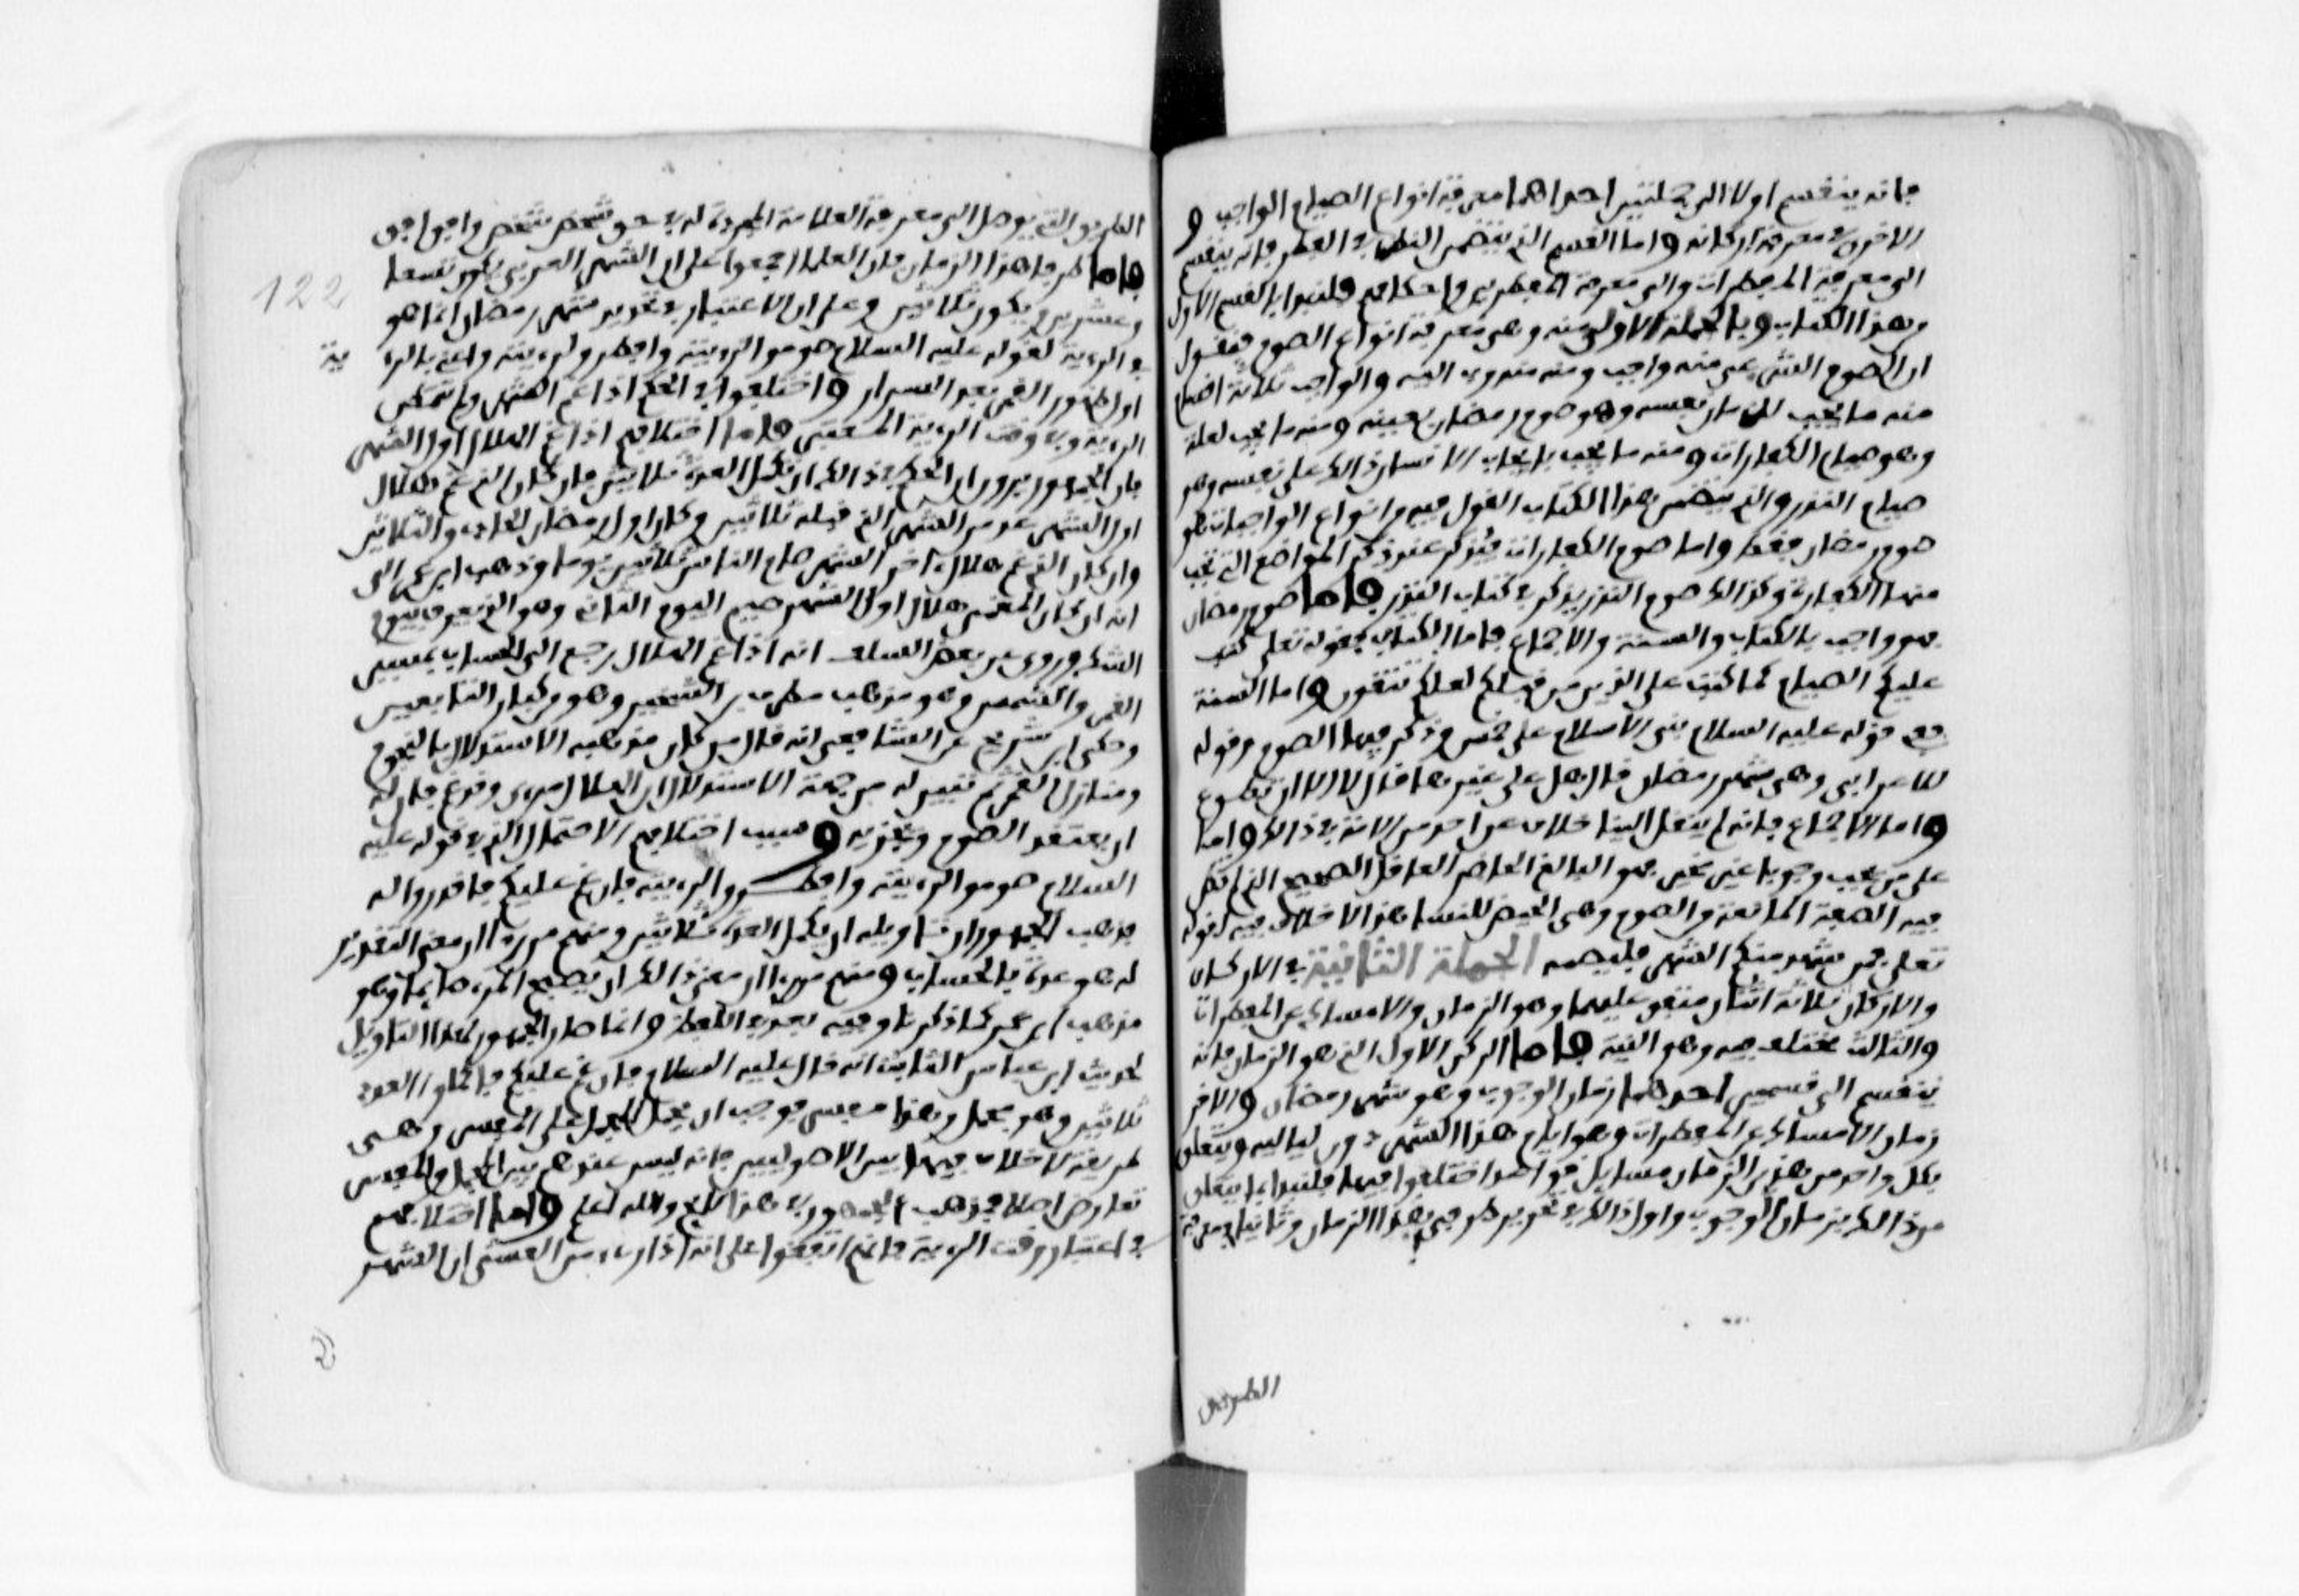 فانه ينقسم اولا الى جملتين احداهما معرفة انواع الصيام الواجب و
الاخرى معرفة اركانه واما القسم الذي يتضمن النظر في الفطر فانه ينقسم
الى معرفة المفطرات والى معرفة المفطرين واحكامهم فلنبدا بالقسم الاول
من هذا الكتاب وبالجملة الاولى منه وهي معرفة انواع الصوم فنقول
ان الصوم الشرعي منه واجب ومنه مندوب اليه والواجب ثلاثة اقسام
منه ما يجب للزمان نفسه وهو صوم رمضان بعينه ومنه ما يجب لعلة
وهو صيام الكفارات ومنه ما يجب بايجاب الانسان ذالك على نفسه وهو
صيام النذر والذي يتضمن هذا الكتاب القول فيه من انواع الواجبات هو
صوم رمضان فقط واما صوم الكفارات فيذكر عند ذكر المواضع التي تجب
منها الكفارة وكذالك صوم النذر يذكر في كتاب النذر فاما صوم رمضان
فهو واجب بالكتاب والسنة والاجماع فاما الكتاب فقوله تعلى كتب
عليكم الصيام كما كتب على الذين من قبلكم لعلكم تتقون واما السنة
ففي قوله عليه السلام بني الاسلام على خمس وذكر فيها الصوم وقوله
للاعرابي وهي شهر رمضان قال هل علي غيرها قال لا الا ان تطوع
واما الاجماع فانه لم ينقل الينا خلاف عن احد من الامة في ذالك واما
على من يجب وجوبا غير مخير فهو البالغ الحاضر العاقل الصحيح اذا لم تكن
فيه الصفة المانعة من الصوم وهي الحيض للنساء هذا لا خلاف فيه لقوله
تعلى فمن شهد منكم الشهر فليصمه الجملة الثانية في الاركان
والاركان ثلاثة اثنان متفق عليهما وهو الزمان والامساك عن المفطرات
والثالث مختلف فيه وهو النية فاما الركن الاول الذي هو الزمان فانه
ينقسم الى قسمين احدهما زمان الوجوب وهو شهر رمضان والاخر
زمان الامساك عن المفطرات وهو ايام هذا الشهر دون لياليه ويتعلق
بكل واحد من هذين الزمان مسايل قواعد اختلفوا فيها فلنبدا بما يتعلق
من ذالك بزمان الوجوب واول ذالك في تحديد طرفي هذا الزمان وثانيا في معرفة
الطريق
الطريق التي يوصل الى معرفة العلامة المحددة له في حق شخص شخص وافق افق
فاما طرفا هذا الزمان فان العلما اجمعوا على ان الشهر العربي يكون تسعا
وعشرين ويكون ثلاثين وعلى ان الاعتبار في تحديد شهر رمضان انما هو
في الرءية لقوله عليه السلام صوموا لرويته وافطروا لرءيته واعني بالرء
ية
اول ظهور القمر بعد السرار واختلفوا في الحكم اذا غم الشهر ولم تمكن
الرءية وفي وقت الرءية المعتبر فاما اختلافهم اذا غم الهلال اول الشهر
فان الجمهور يرون ان الحكم في ذالك ان تكمل العدة ثلاثين فان كان الذي غم هلال
اول الشهر عد من الشهر الذي قبله ثلاثين وكان اول رمضان الحادي والثلاثين
وان كان الذي غم هلال آخر الشهر صام الناس ثلاثين يوما وذهب ابن عمر الى
انه ان كان المغمى هلال اول الشهر صيم اليوم الثاني وهو الذي يعرف بيوم
الشك وروي عن بعض السلف انه اذا غم الهلال رجع الى الحساب بمسير
القمر والشمس وهو مذهب مطرف بن الشخير وهو من كبار التابعين
وحكى ابن شريح عن الشافعي انه قال من كان مذهبه الاستدلال بالنجوم
ومنازل القمر ثم تبين له من جهة الاستدلال ان الهلال مرءي وقد غم فان له
ان يعتقد الصوم ويجزيه وسبب اختلافهم الاحتمال الذي في قوله عليه
السلام صوموا لرءيته وافطروا لرءيته فان غم عليكم فاقدروا له
فذهب الجمهور ان تاويله ان يكمل العدة ثلاثين ومنهم من رءا ان معنى التقدير
له هو عده بالحساب ومنهم من رءا ان معنى ذالك ان يصبح المرء صايما وهو
مذهب ابن عمر كما ذكرنا وفيه بعد في اللفظ وانما صار الجمهور لهذا التاويل
لحديث ابن عباس الثابت انه قال عليه السلام فان غم عليكم فاكملوا العدة
ثلاثين وهو مجمل وهذا مفسر فوجب ان يحمل المجمل على المفسر وهي
طريقة لا خلاف فيها بين الاصوليين فانه ليس عندهم بين المجمل والمفسر
تعارض اصلا فمذهب الجمهور في هذا لائح والله اعلم واما اختلافهم
في اعتبار وقت الرءية فانهم اتفقوا على انه اذا رءي من العشي ان الشهر
122